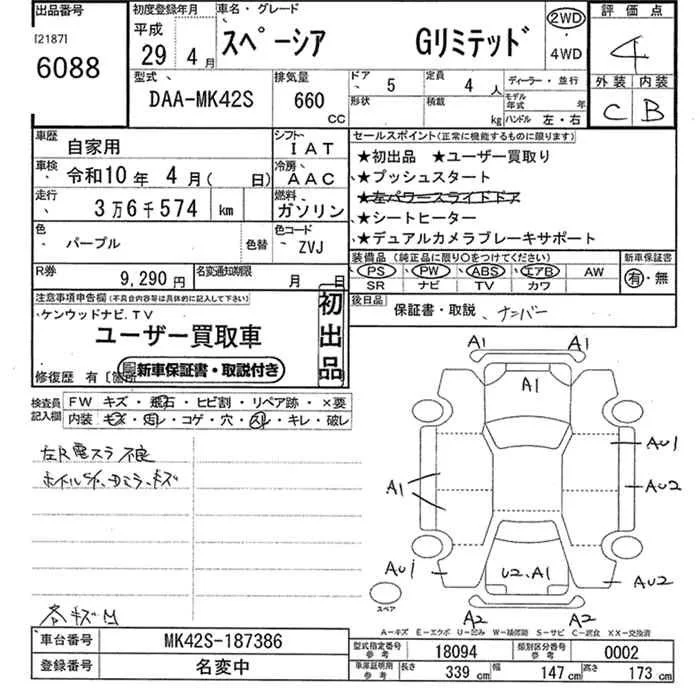 出品番号
[2187]
6088
初度登録年月
平成
29年 4月
車名・グレード
スペーシア Gリミテッド
2WD
・
4WD
評価点
4
外装 内装
C B
型式
DAA-MK42S
排気量
660
CC
ドア 5
形状
定員 4 人
積載 kg
ディーラー・並行
モデル年式 年
ハンドル 左・右
車歴 自家用
シフト IAT
車検 令和10年 4月( 日)
冷房 AAC
走行 3万6千574 km
燃料 ガソリン
色 パープル
色替
色コード ZVJ
R券 9,290円
名変通知期限 月 日
セールスポイント(正常に機能するものに限ります)
★初出品 ★ユーザー買取り
★プッシュスタート
★左パワースライドドア
★シートヒーター
★デュアルカメラブレーキサポート
装備品 (純正品に限り○をつけてください)
PS PW ABS エアB AW
SR ナビ TV カワ
新車保証書
有・無
後日品
保証書・取説、ナンバー
注意事項申告欄(不具合内容等は具体的に記入して下さい)
ケンウッドナビ.TV
ユーザー買取車
新車保証書・取説付き
初出品
修復歴 有〔箇所
検査員記入欄
FW キズ・飛石・ヒビ割・リペア跡・×要
内装・モズ・汚レ・コゲ・穴・スレ・キレ・破レ
左R電スラ不良
各キズM
A1 A1
A1
AU1
A1
AU2
AU1
U2、A1
AU2
A2 A2
スペア
A-キズ E-エクボ U-凹み W-補修跡 S-サビ C-腐食 XX-交換済
車台番号 MK42S-187386
登録番号 名変中
型式指定番号 参考 18094
類別区分番号 参考 0002
車庫証明用 参考
長さ 339 cm
幅 147 cm
高さ 173 cm